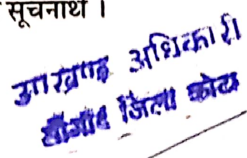 सूचनार्थ ।
उपखण्ड अधिकारी
सांगोद जिला कोटा